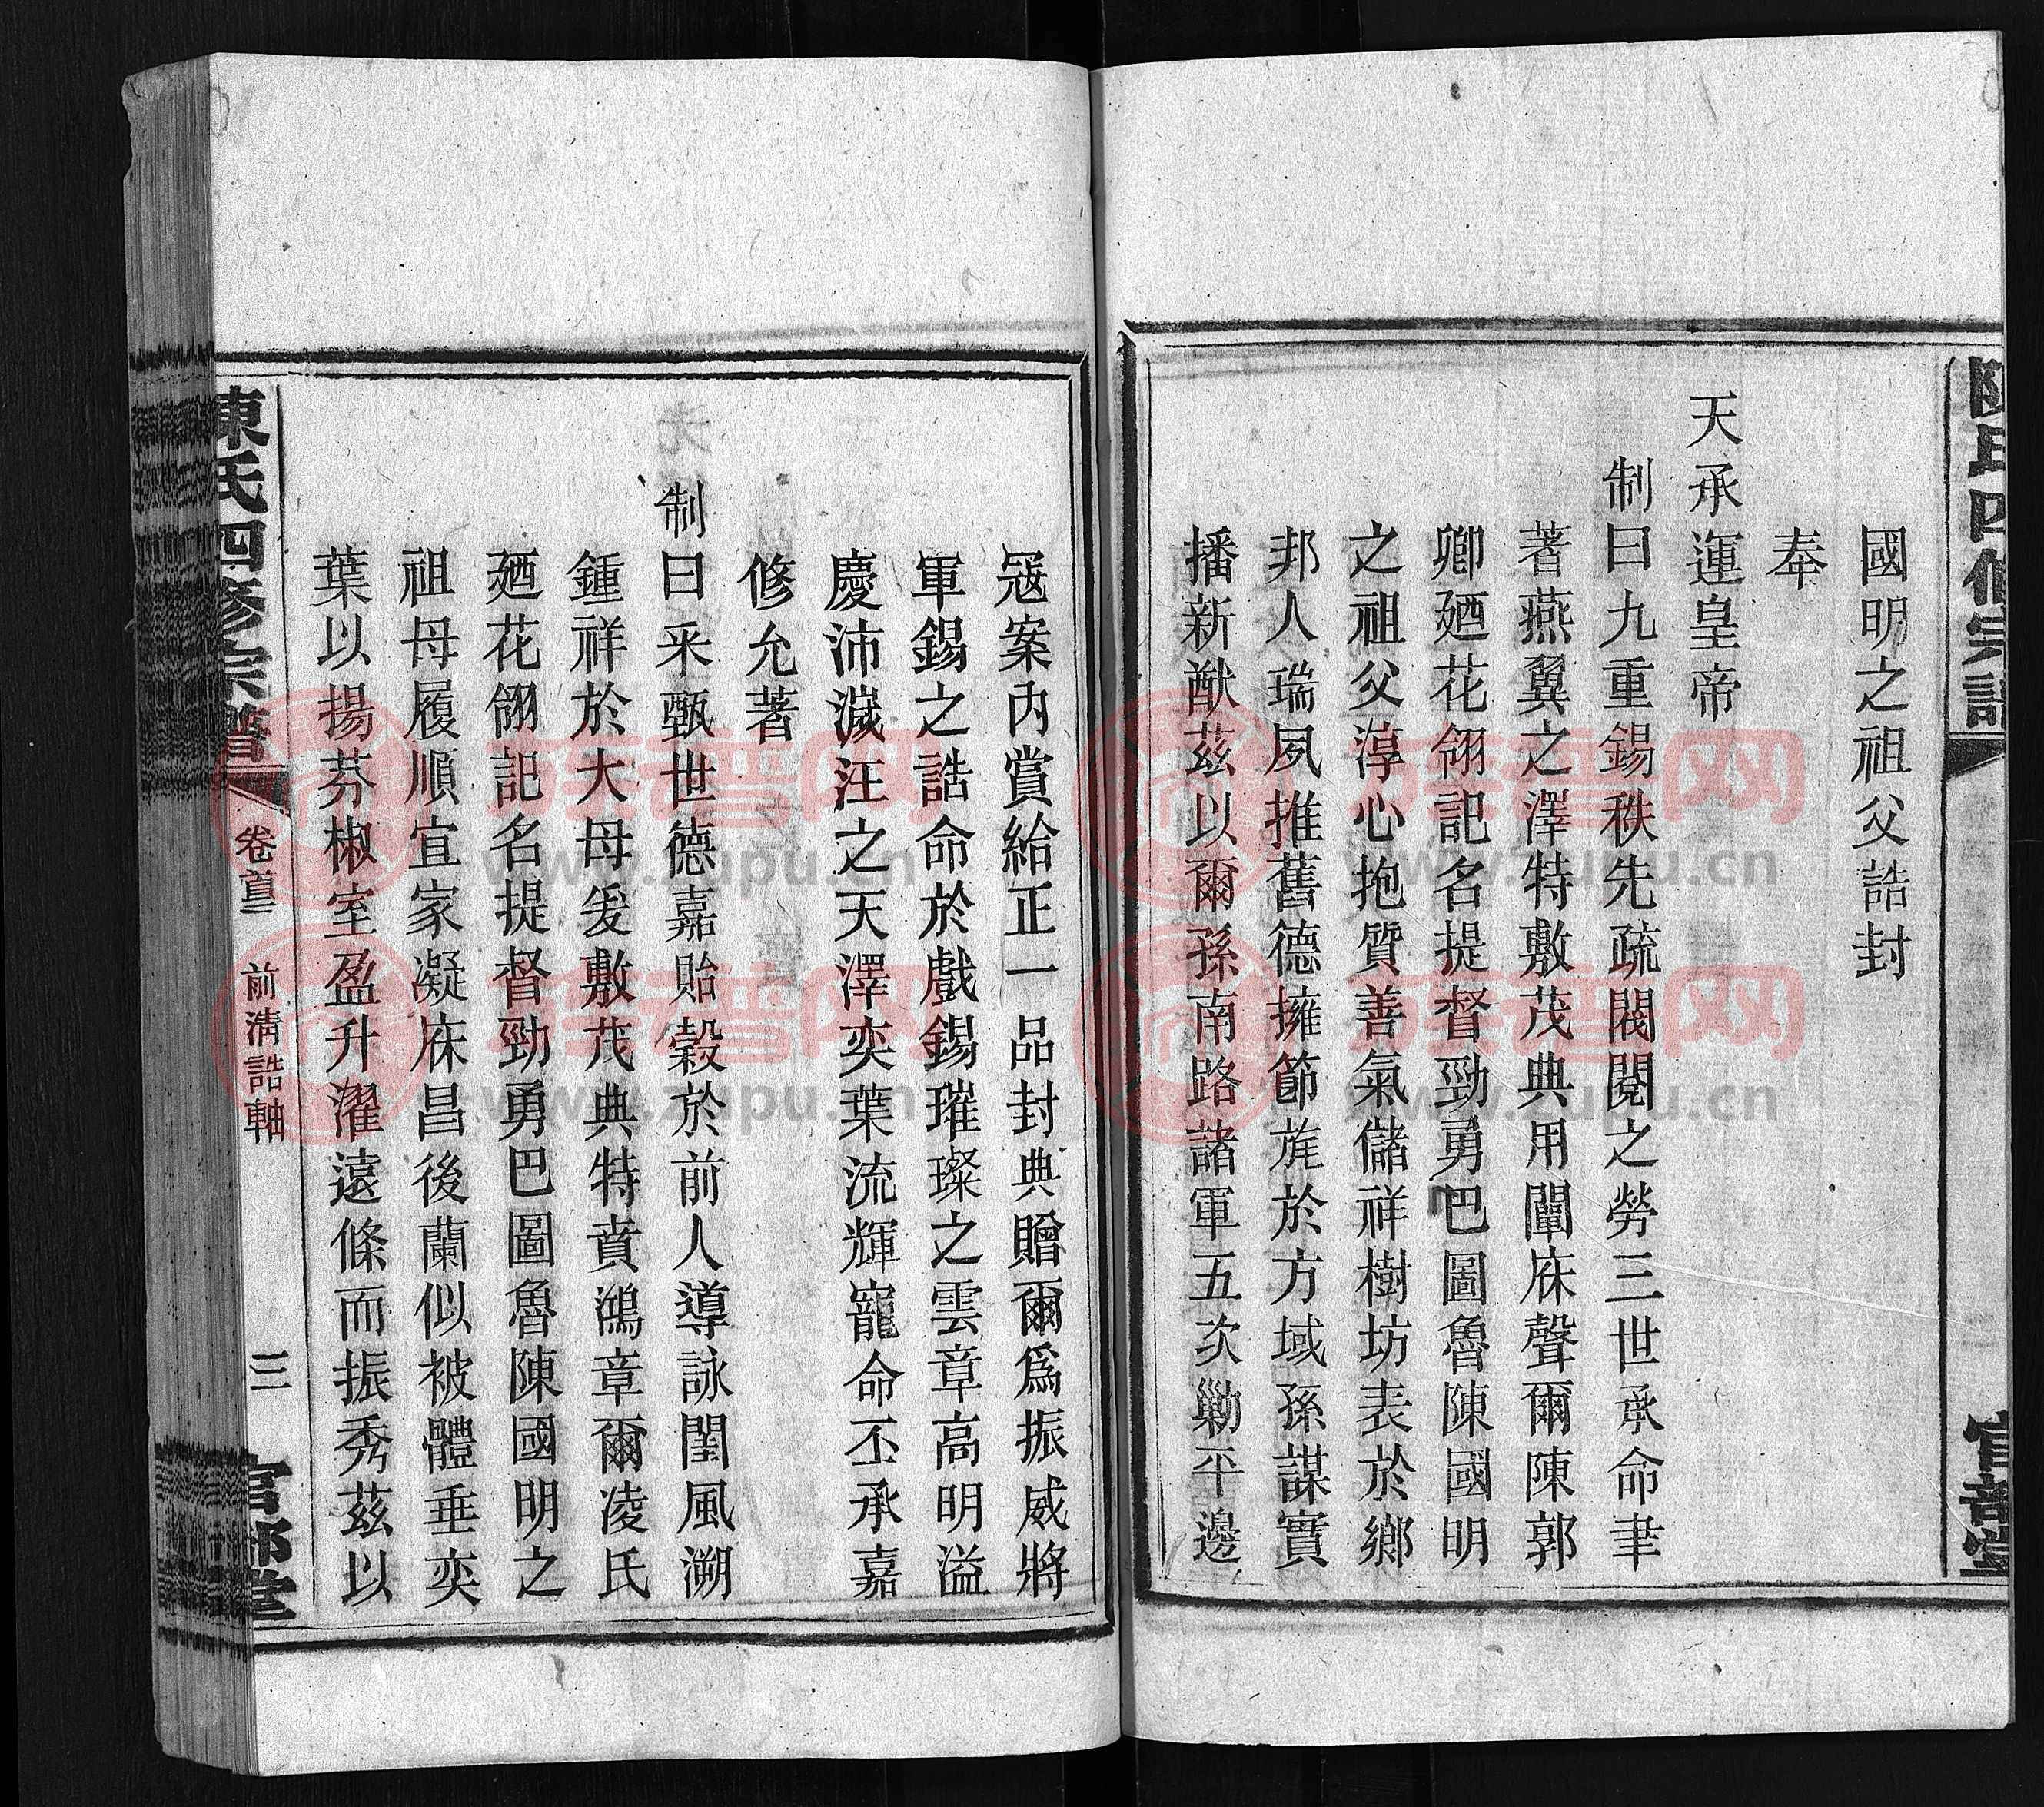 陳氏四修宗譜
官部堂
國明之祖父誥封
奉
天承運皇帝
制曰九重錫秩先疏閥閱之勞三世承命聿
著燕翼之澤特敷茂典用闡庥聲爾陳郭
卿廼花翎記名提督勁勇巴圖魯陳國明
之祖父淳心抱質善氣儲祥樹坊表於鄉
邦人瑞夙推舊德擁節旄於方域孫謀實
播新猷茲以爾孫南路諸軍五次勦平邊
寇案內賞給正一品封典贈爾爲振威將
軍錫之誥命於戲錫璀璨之雲章高明溢
慶沛濊汪之天澤奕葉流輝寵命丕承嘉
修允著
制曰釆甄世德嘉貽穀於前人導詠閨風溯
鍾祥於大母爰敷茂典特賁鴻章爾凌氏
廼花翎記名提督勁勇巴圖魯陳國明之
祖母履順宜家凝庥昌後蘭似被體垂奕
葉以揚芬椒室盈升濯遠條而振秀茲以
陳氏四修宗譜
卷首
前清誥軸
三
官部堂
族譜网
www.zupu.cn
族譜网
www.zupu.cn
族譜网
www.zupu.cn
族譜网
www.zupu.cn